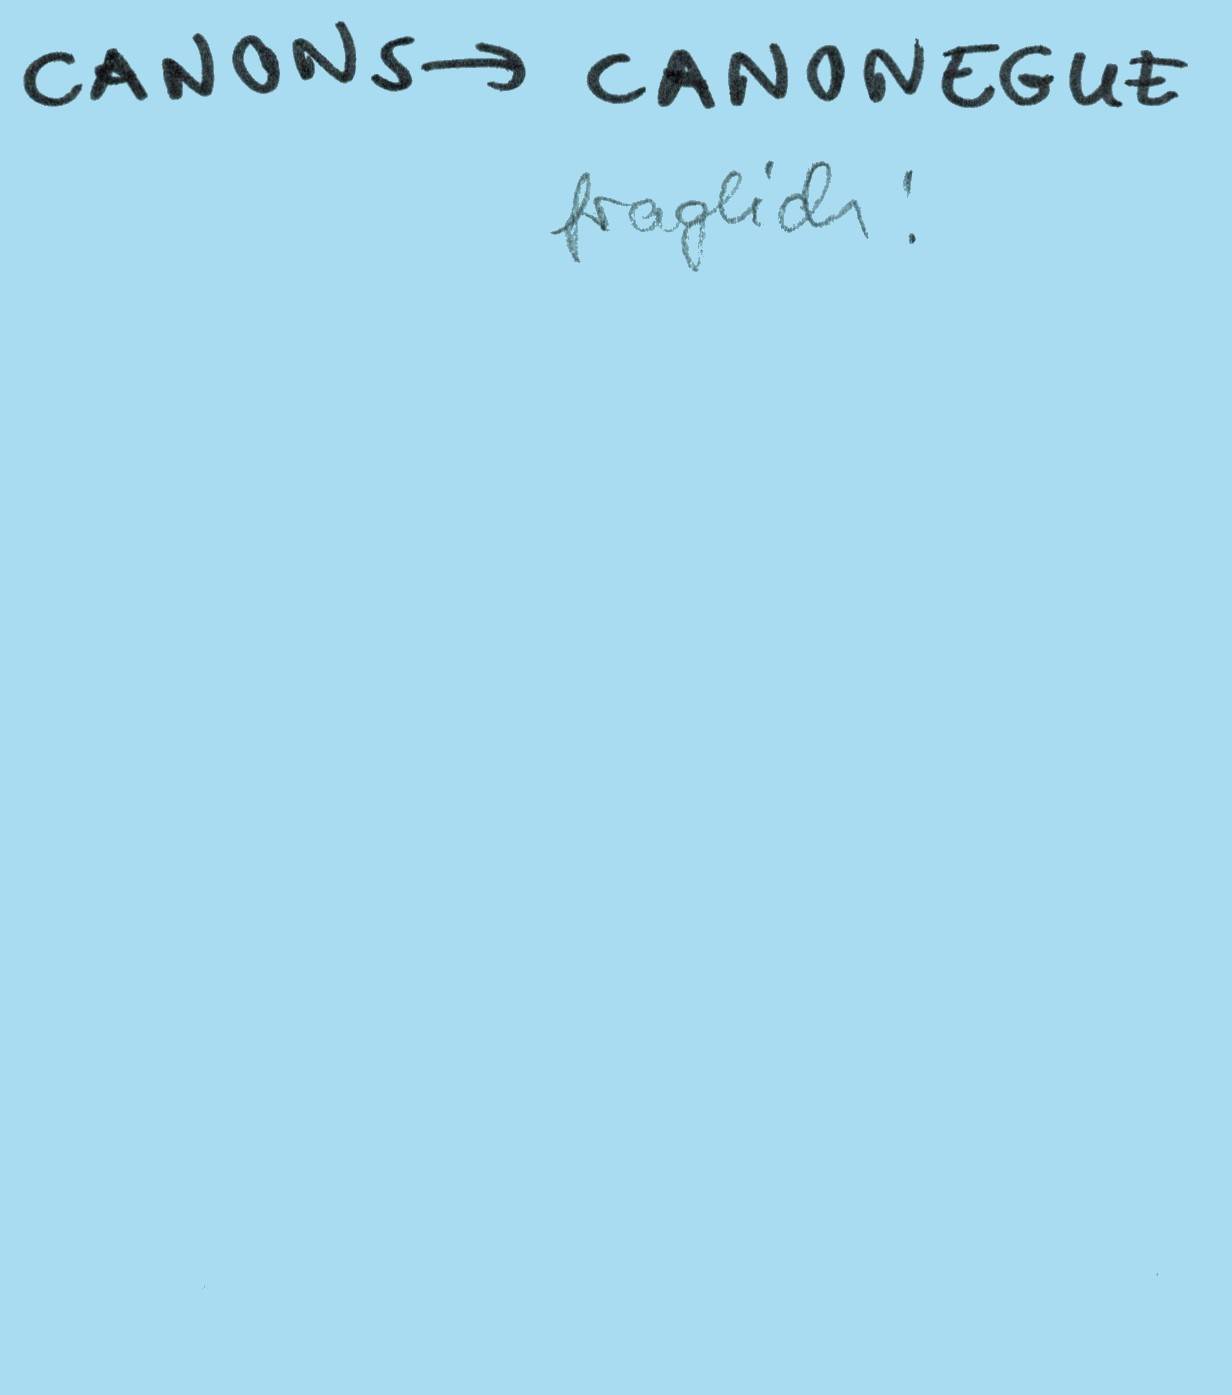 CANONS → CANONEGUE
fraglich!